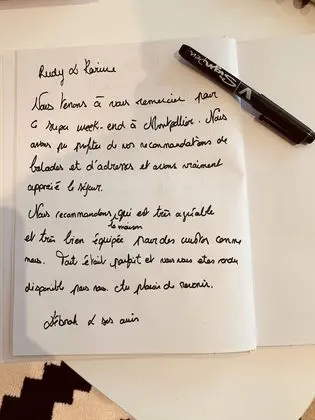 Rudy & Karine
Nous tenons à vous remercier pour
ce super week-end à Montpellier. Nous
avons pu profiter de vos recommandations de
balades et d'adresses et avons vraiment
apprécié le séjour.
Nous recommandons, qui est très agréable
la maison
et très bien équipée pour des
nous. Tout était parfait et vous vous êtes rendu
disponible pour nous. Au plaisir de revenir.
& ses amis
V Sign Pen